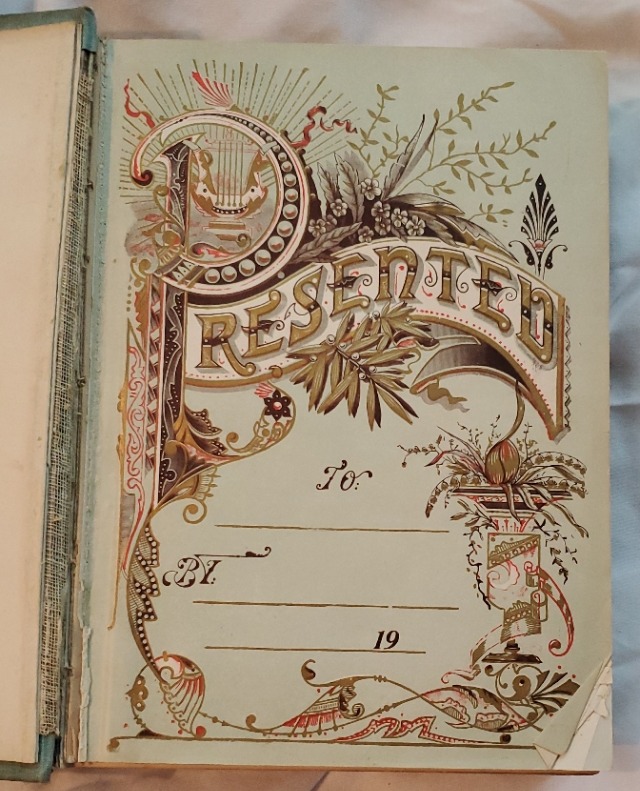 PRESENTED
To:
By.
19